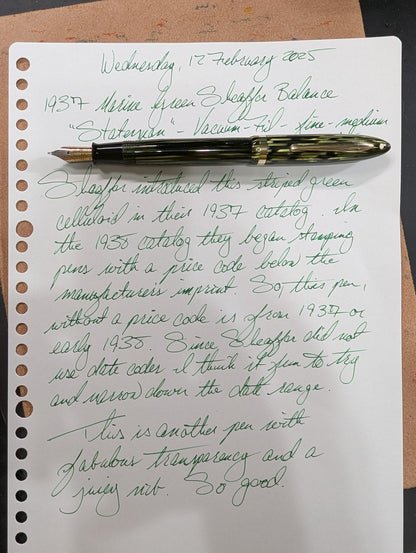 Wednesday, 12 February 2025
1937 Marine Green Sheaffer Balance
"Statesman" - Vacuum-Fil - fine-medium
Sheaffer introduced this striped green
celluloid in their 1937 catalog. In
the 1938 catalog they began stamping
pens with a price code below the
manufacturers imprint. So, this pen,
without a price code is from 1937 or
early 1938. Since Sheaffer did not
use date codes I think it fun to try
and narrow down the date range.
This is another pen with
fabulous transparency and a
juicy nib. So good.